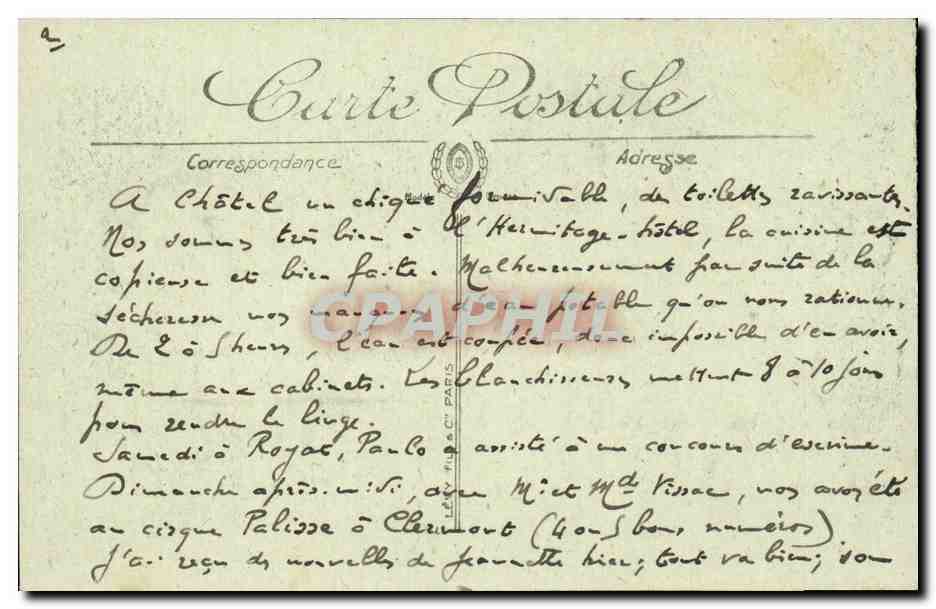 2
Carte Postale
Correspondance
Adresse
A Châtel un chique formidable, des toilettes ravissantes.
Nos sommes très bien à l'Hermitage-hôtel, la cuisine est
copieuse et bien faite. Malheureusement par suite de la
sécheresse nos manquons d'eau potable qu'on nous rationne.
De 2 à 5 heures, l'eau est coupée, donc impossible d'en avoir,
même aux cabinets. Les blanchisseuses mettent 8 à 10 jours
pour rendre le linge.
Samedi à Royat, Paulo a assisté à un concours d'escrime.
Dimanche après-midi, avec Mr et Mde Vissac, nos avons été
au cirque Palisse à Clermont (4 ou 5 bons numéros)
J'ai reçu des nouvelles de Jeannette hier; tout va bien; son
LÉVY FILS & Cie PARIS
CPAPHIL